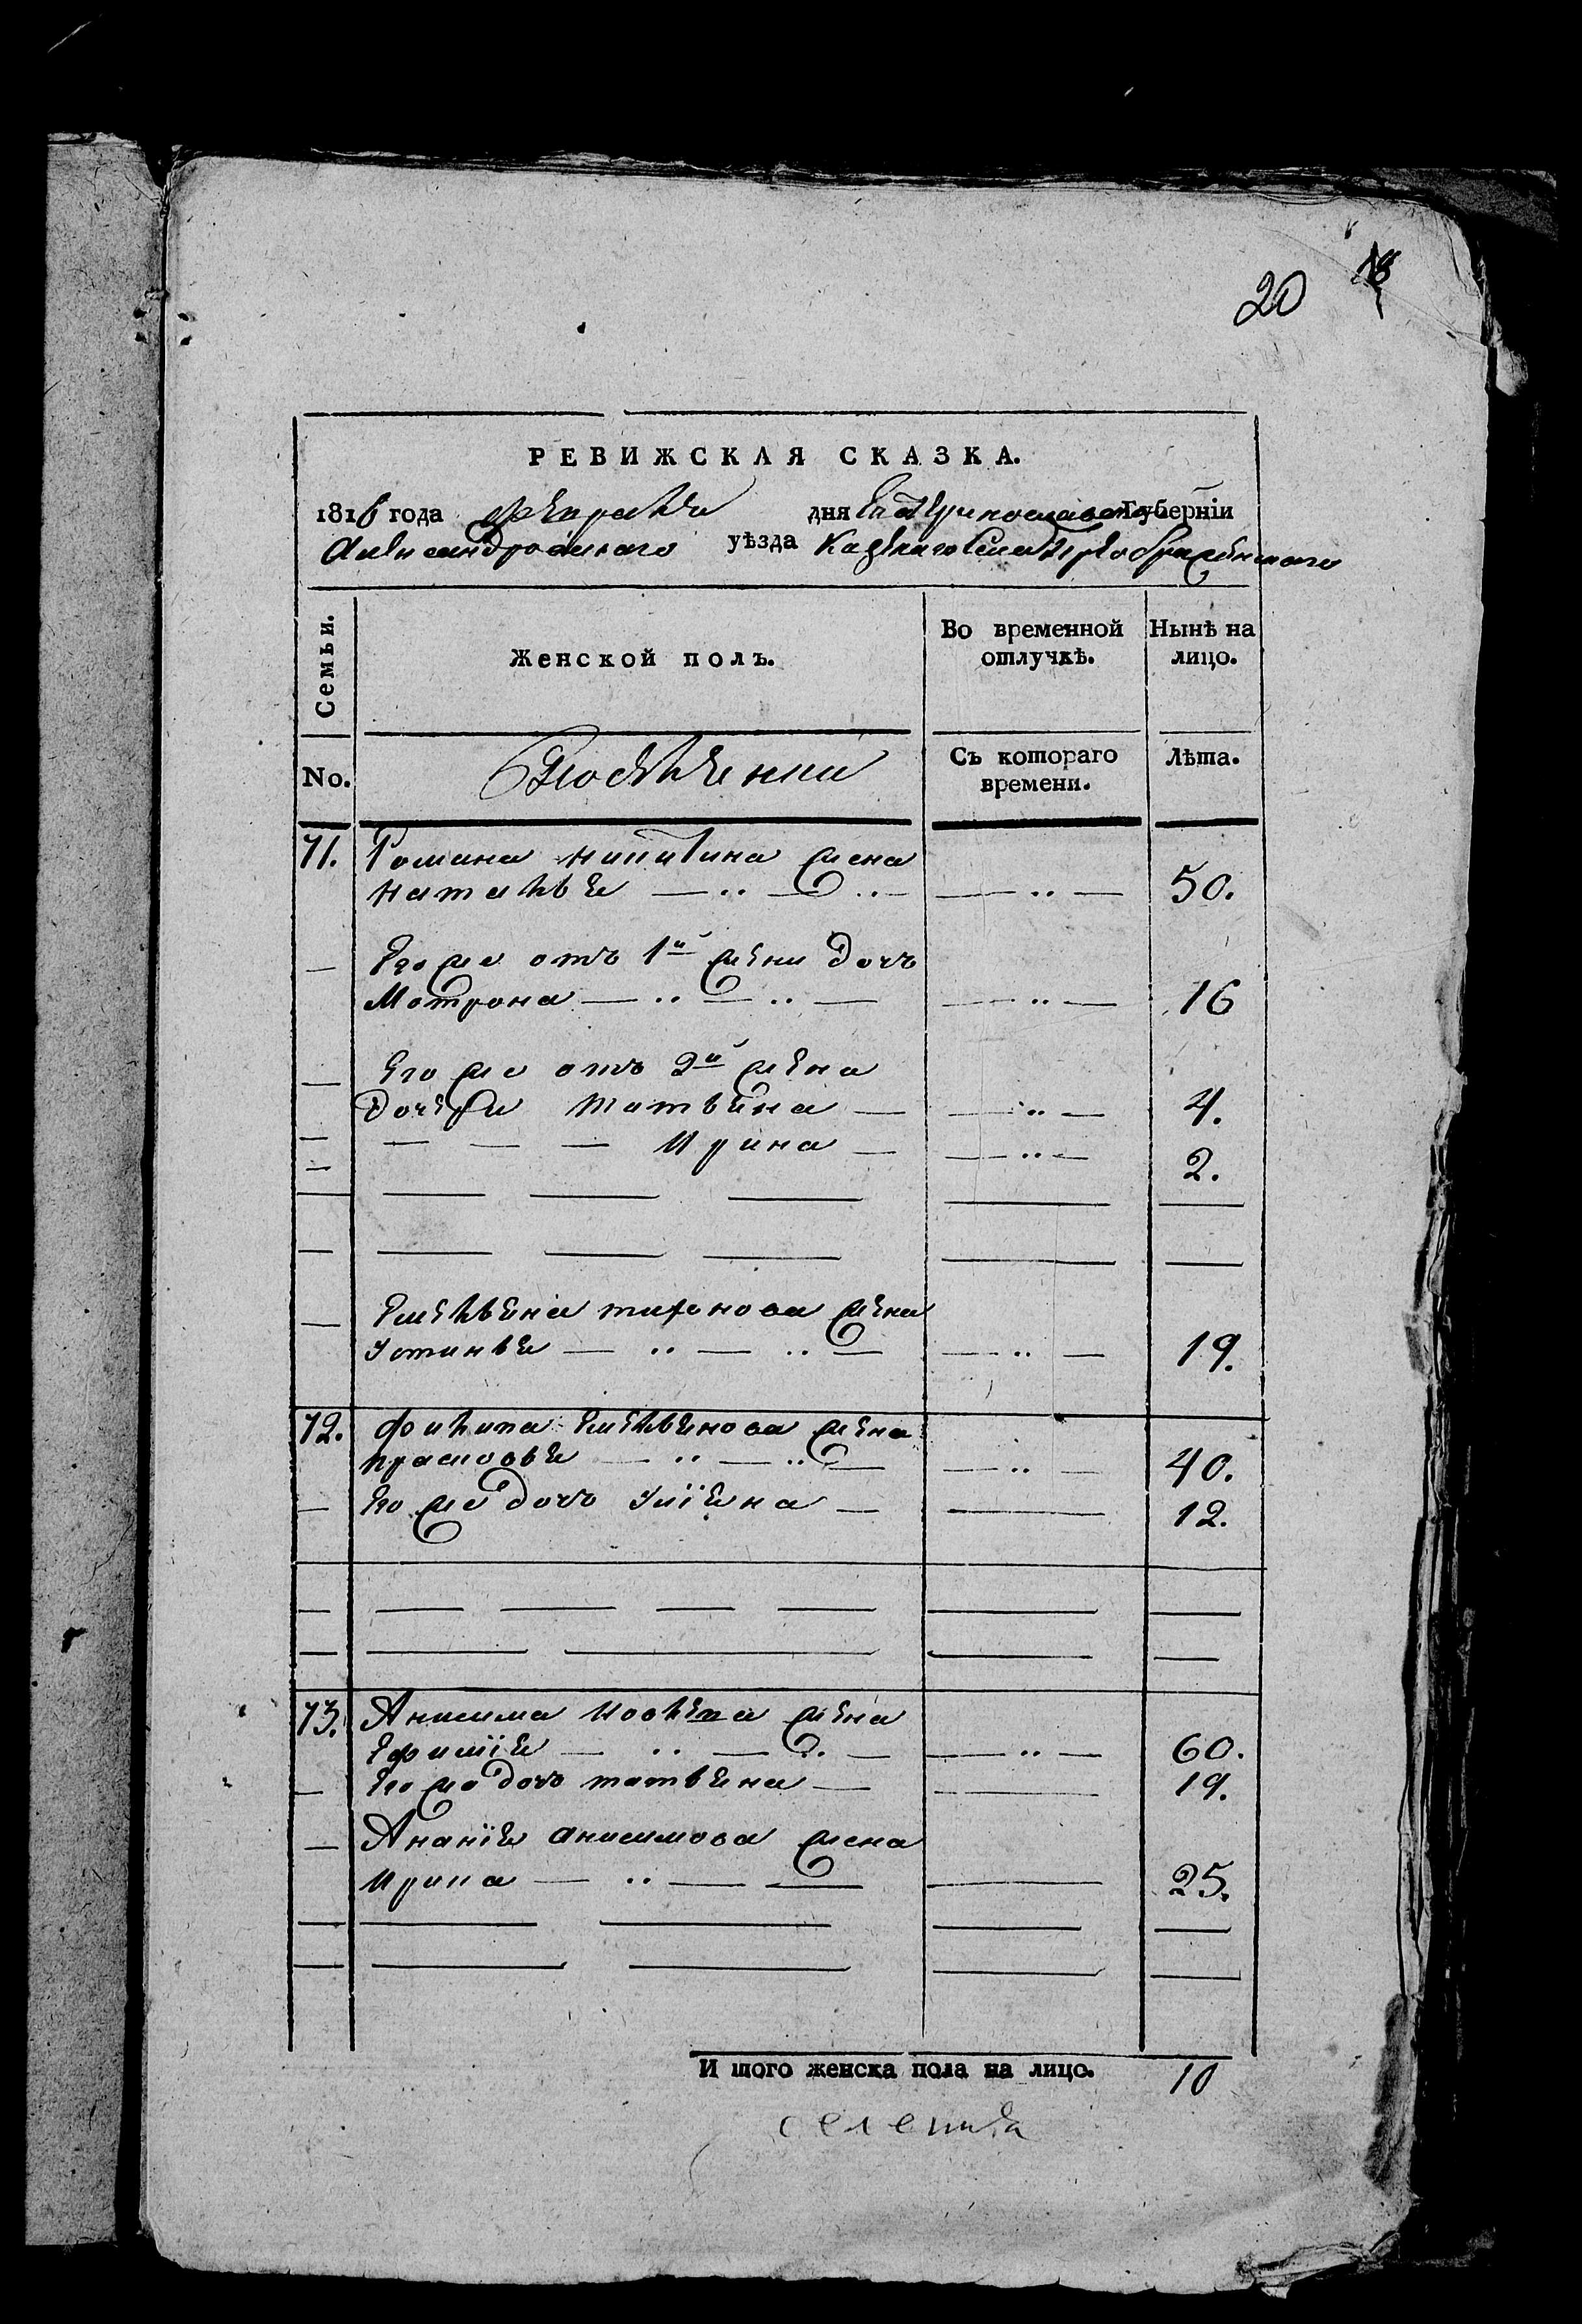 20 18
РЕВИЖСКАЯ СКАЗКА.
1816 года февраля дня Екатеринославской Губерніи
Александровскаго уѣзда Казеннаго Села Преображенскаго
Семьи.
Женской полъ.
Во временной отлучкѣ.
Нынѣ на лицо.
No.
Съ котораго времени.
Лѣта.
71. Романа Никитина жена
Наталья — ·· — ·· — — ·· — 50.
— Его же отъ 1й жены дочь
Мотрона — ·· — ·· — — ·· — 16
— Его же отъ 2й жена
дочери Татьяна — — ·· — 4.
— — — — Ирина — — ·· — 2.
— Емельяна Тихонова жена
Устинья — ·· — ·· — — ·· — 19.
72. Филипа Емельянова жена
Прасковья — ·· — ·· — — ·· — 40.
— Его же дочь Уліяна — — 12.
73. Анисима жена
Ефимія — ·· — ·· — — ·· — 60.
— Его же дочь Татьяна — — 19.
— Ананія Анисимова жена
Ирина — ·· — — — 25.
И того женска пола на лицо. 10
селенія